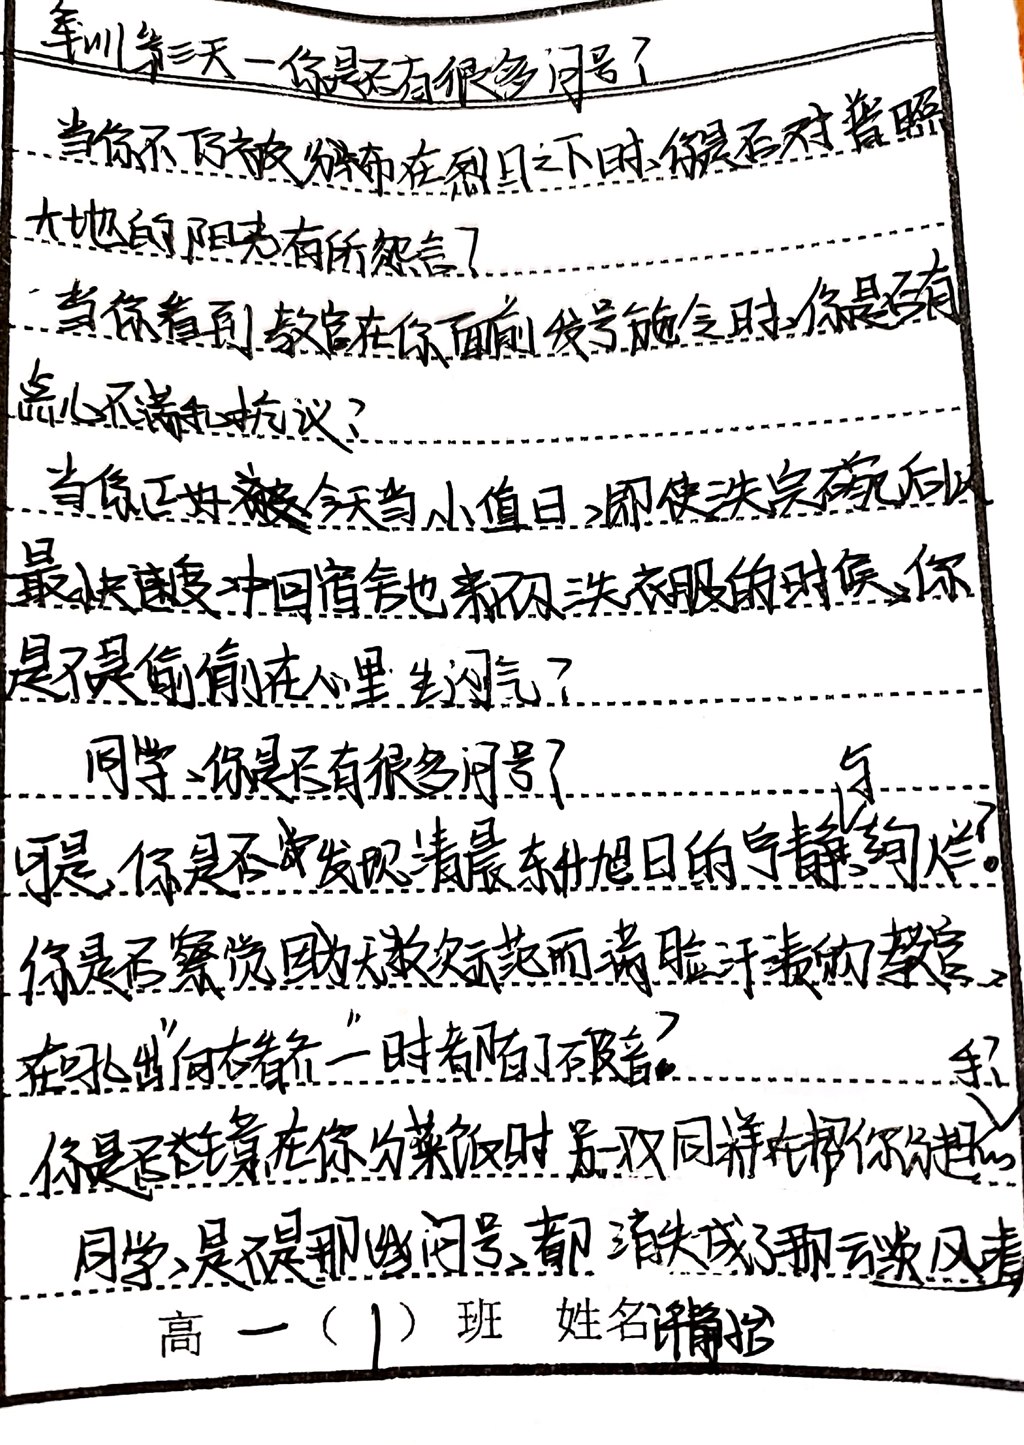 军训第三天一你是否有很多问号?
当你不仍被分布在烈日之下时、你是否对普照
大地的阳光有所怨言?
当你看到教官在你面前发号施令时、你是否有
点儿不满和抗议?
当你正好被今天当小值日、即使洗完碗后以
最快速度冲回宿舍也来不及洗衣服的时候、你
是不是偷偷在心里生闷气?
同学、你是否有很多问号?
可是、你是否发现清晨东升旭日的宁静与绚烂?
你是否察觉因为无数次示范而满脸汗渍的教官、
在吼出"向右看齐"一时都有了破音?
你是否在你分菜饭时另一双同样在帮你分担的手?
同学、是不是那些问号、都消失成了那云淡风清
高一(1)班 姓名许静怡